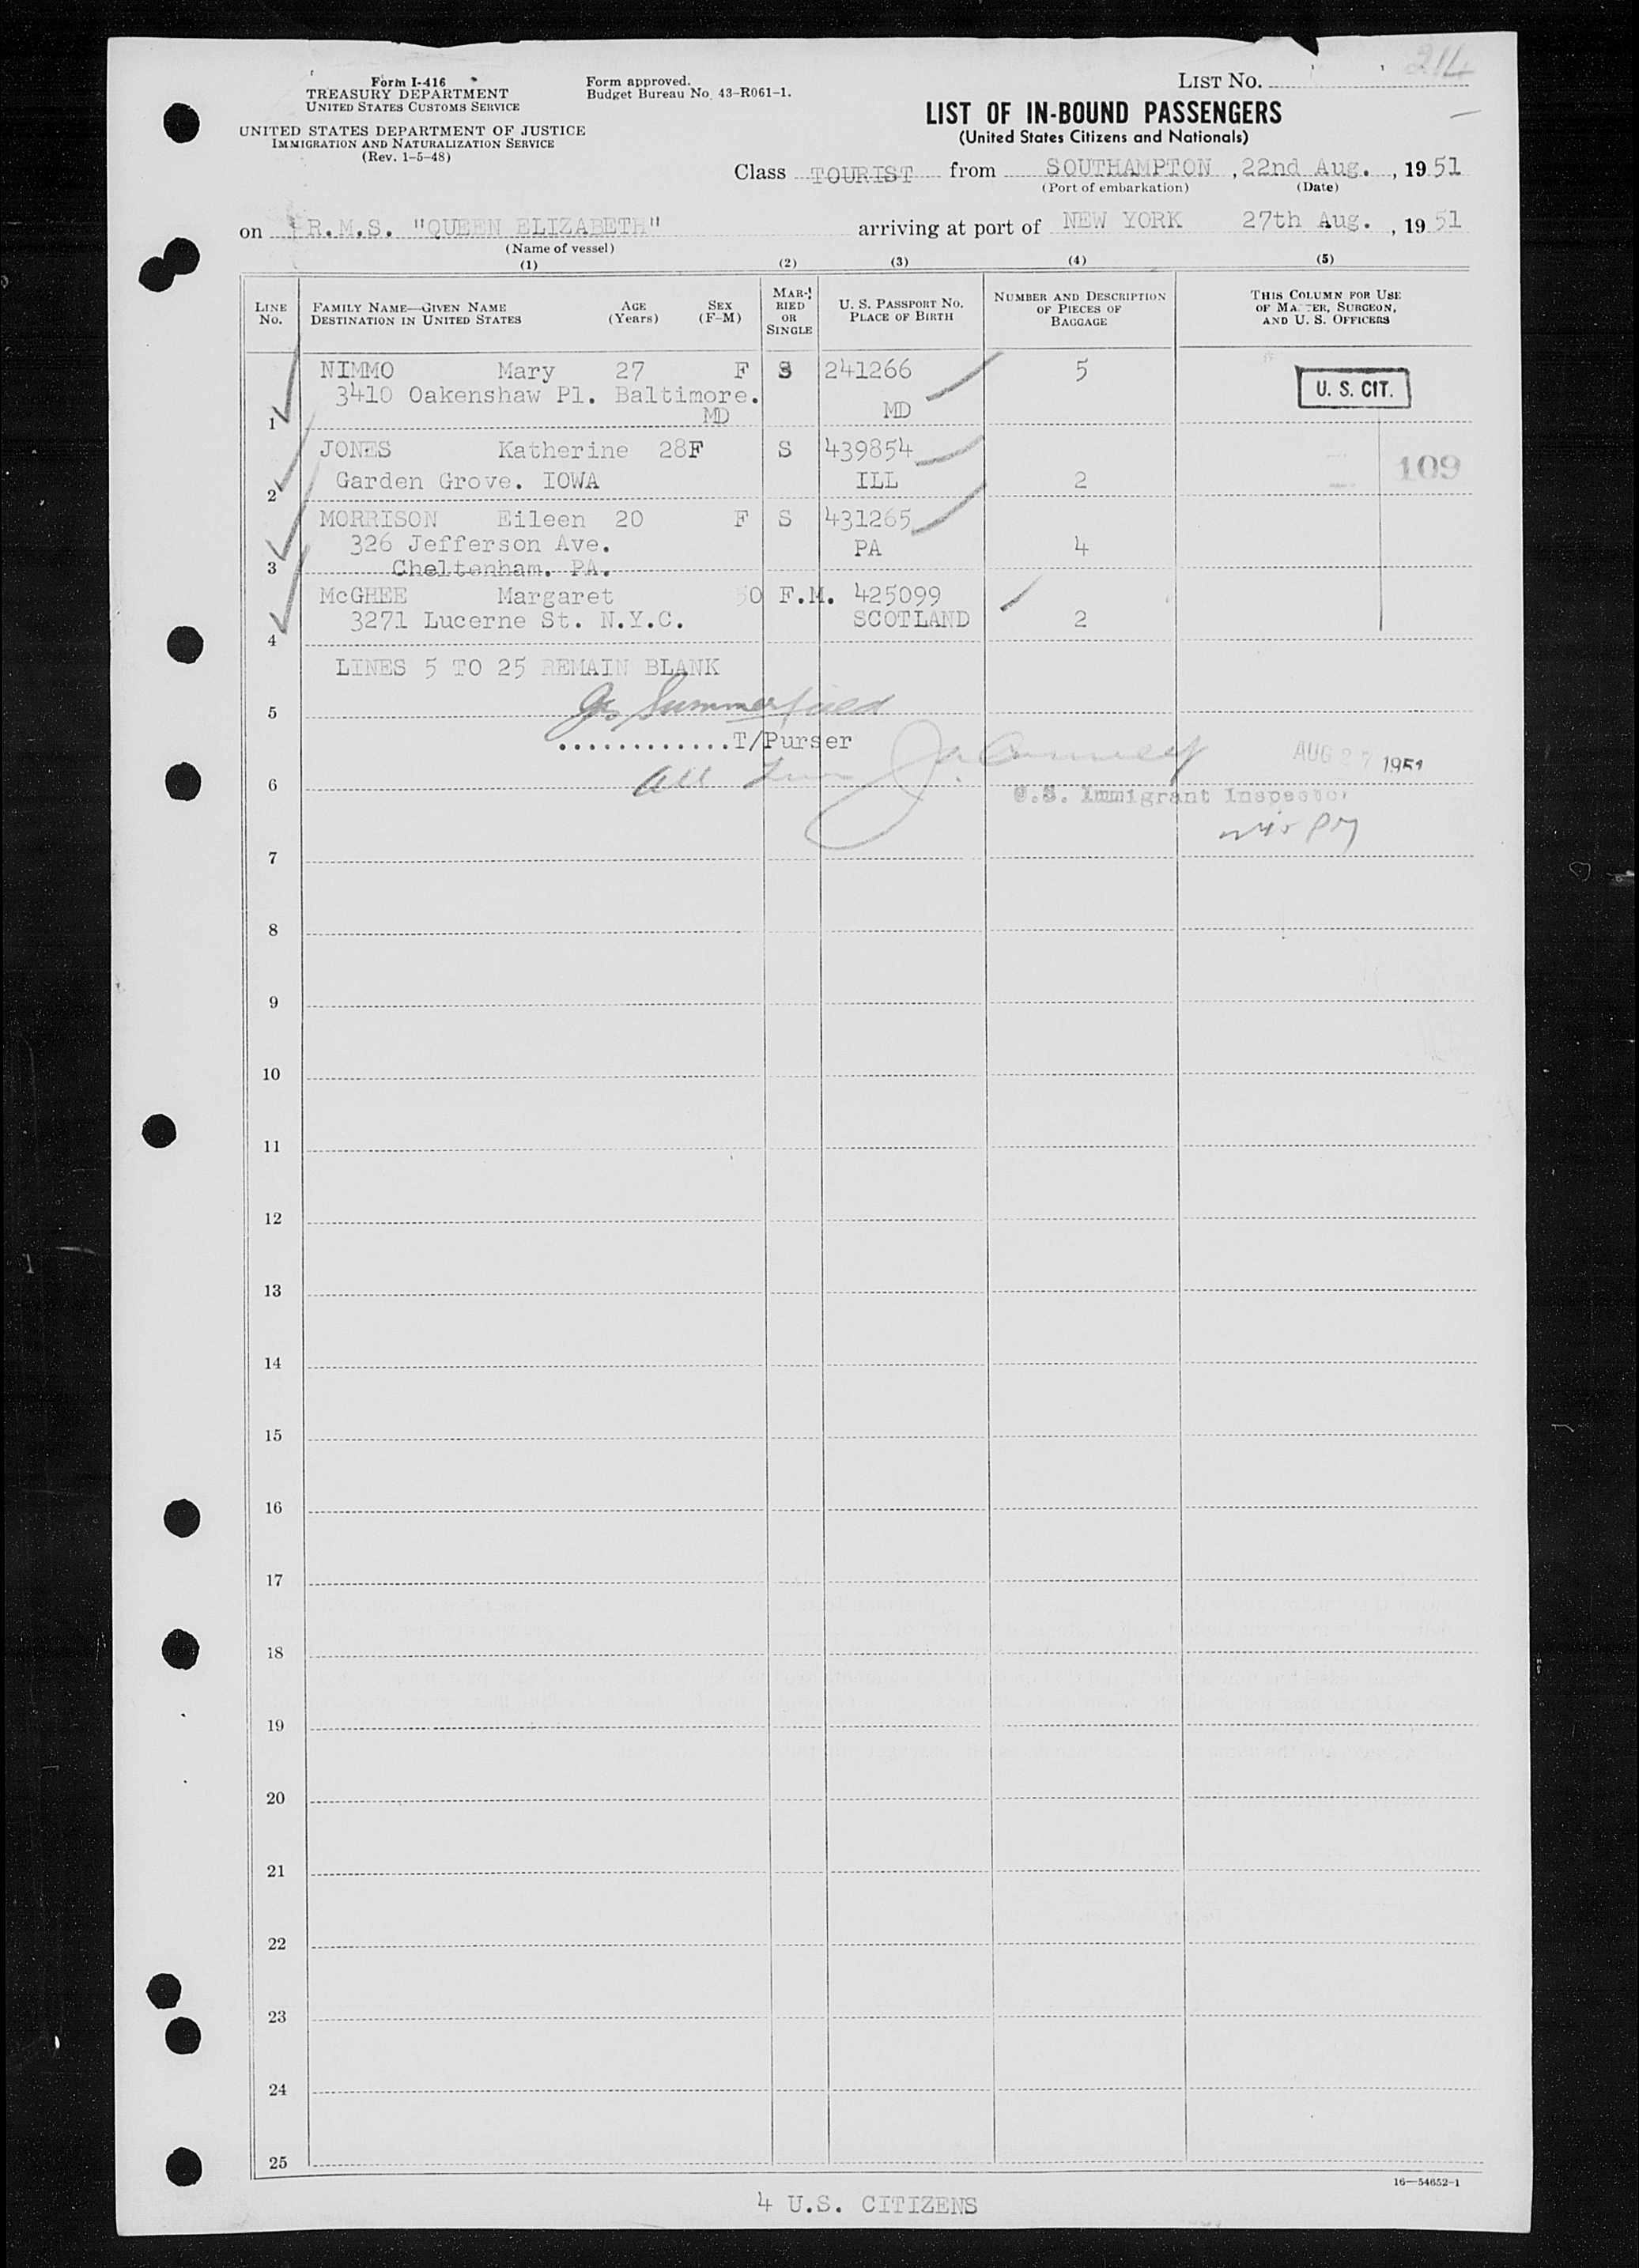 214
Form I-416
TREASURY DEPARTMENT
UNITED STATES CUSTOMS SERVICE
UNITED STATES DEPARTMENT OF JUSTICE
IMMIGRATION AND NATURALIZATION SERVICE
(Rev. 1-5-48)
Form approved.
Budget Bureau No. 43-R061-1.
LIST No.
LIST OF IN-BOUND PASSENGERS
(United States Citizens and Nationals)
Class TOURIST from SOUTHAMPTON , 22nd Aug. , 19 51
(Port of embarkation) (Date)
on R.M.S. "QUEEN ELIZABETH" arriving at port of NEW YORK 27th Aug. , 19 51
(Name of vessel)
(1) (2) (3) (4) (5)
LINE No.
FAMILY NAME—GIVEN NAME AGE SEX
DESTINATION IN UNITED STATES (Years) (F-M)
MARRIED OR SINGLE
U. S. PASSPORT No.
PLACE OF BIRTH
NUMBER AND DESCRIPTION OF PIECES OF BAGGAGE
THIS COLUMN FOR USE OF MASTER, SURGEON, AND U. S. OFFICERS
NIMMO Mary 27 F S 241266 5
3410 Oakenshaw Pl. Baltimore.
1 MD MD
U. S. CIT.
JONES Katherine 28F S 439854
2 Garden Grove. IOWA ILL 2
109
MORRISON Eileen 20 F S 431265
326 Jefferson Ave. PA 4
3 Cheltenham. PA.
McGHEE Margaret 50 F.M. 425099
3271 Lucerne St. N.Y.C. SCOTLAND 2
4
LINES 5 TO 25 REMAIN BLANK
5 Summerfield
.............T/Purser
AUG 27 1951
6 All
U.S. Immigrant Inspector
7
8
9
10
11
12
13
14
15
16
17
18
19
20
21
22
23
24
25
16—54652-1
4 U.S. CITIZENS